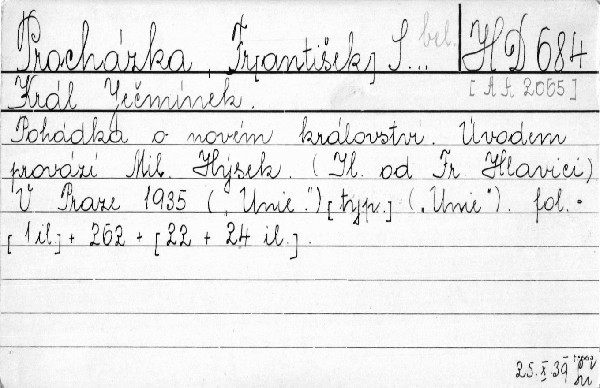 Procházka, Fr[antišek] S... brl. HD 684
Král Ječmínek. [AA 2065]
Pohádka o novém království. Úvodem
provází Mil. Hýsek. (Il. od Fr. Hlavici)
V Praze 1935 („Unie.") [typ.] („Unie"). fol.
[1 il] + 262 + [22 + 24 il.].
25. X. 39